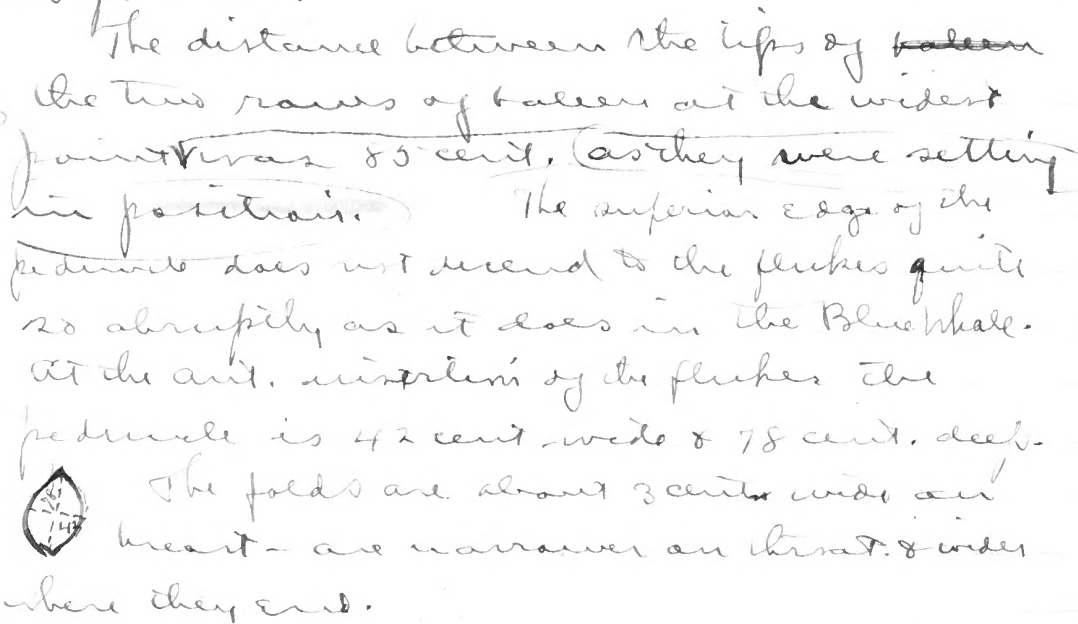 The distance between the tips of baleen
the two rows of baleen at the widest
point was 85 cent. (as they were setting
in position. The superior edge of the
peduncle does not decend to the flukes quite
so abruptly as it does in the Blue Whale.
At the ant. insertion of the flukes the
peduncle is 42 cent wide & 78 cent. deep.
The folds are about 3 cent wide on
78
42
breast - are narrower on throat. & wider
where they end.